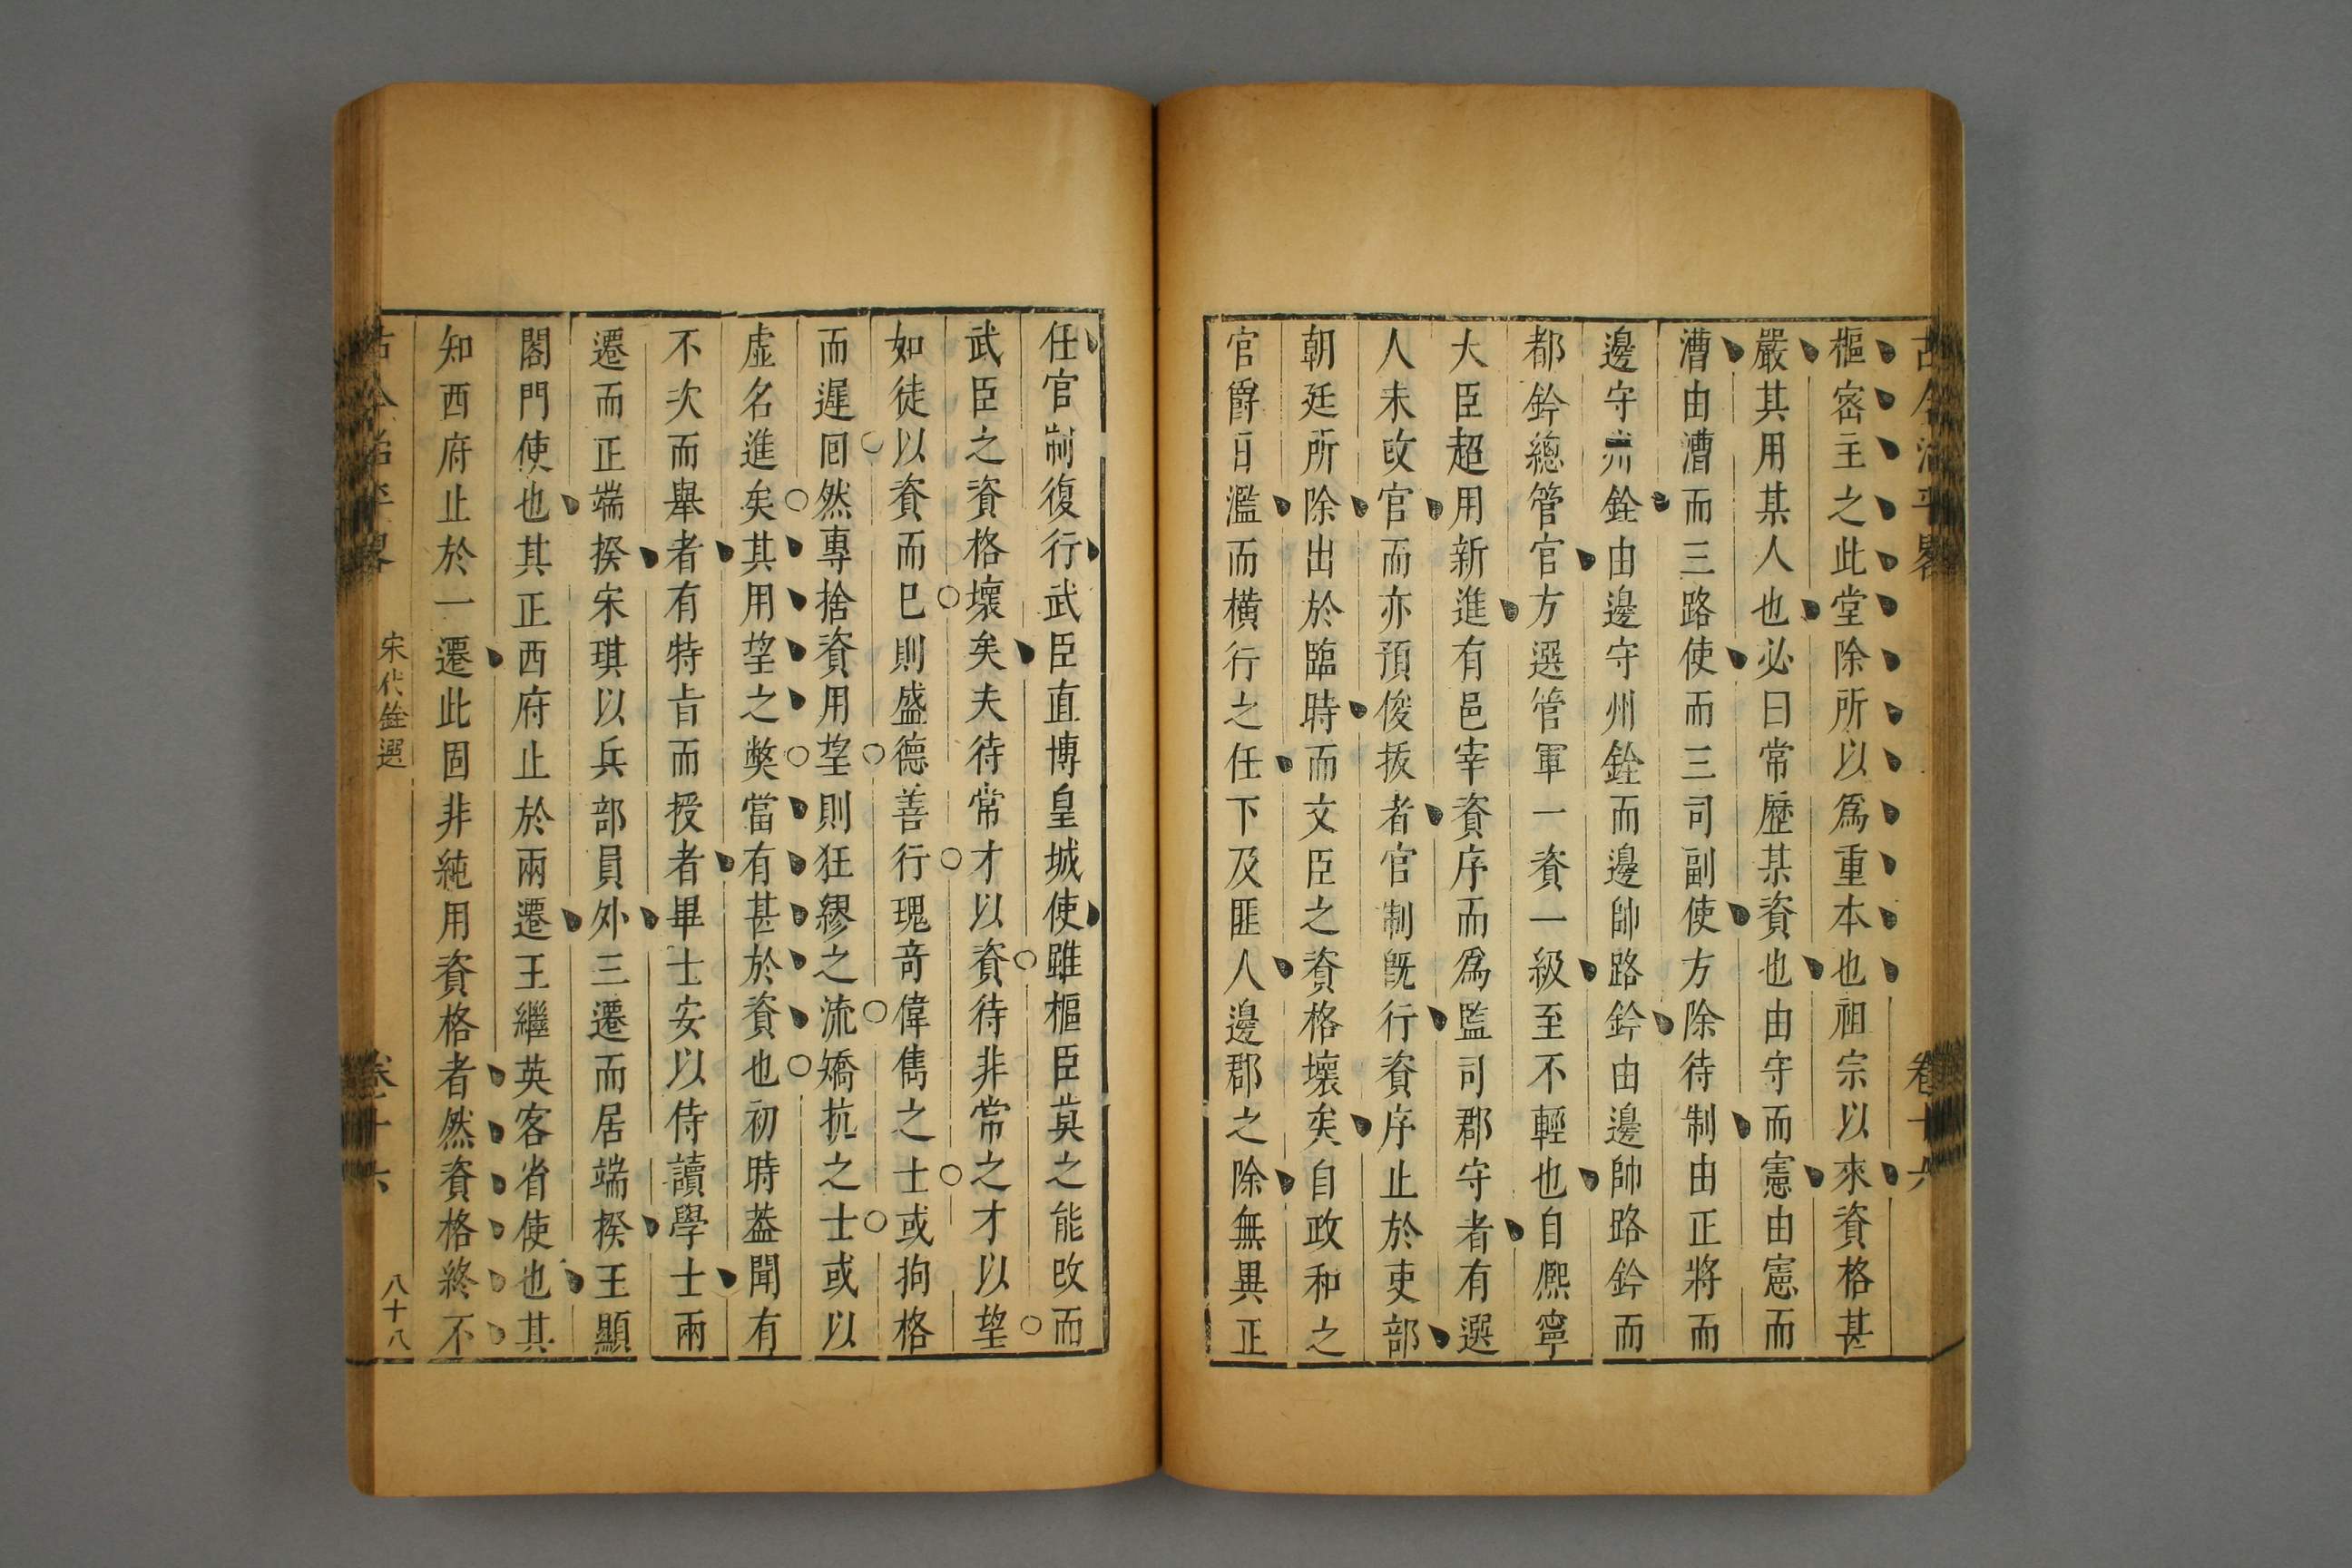 樞密主之此堂除所以爲重本也祖宗以來資格甚
嚴其用某人也必曰常歷某資也由守而憲由憲而
漕由漕而三路使而三司副使方除待制由正將而
邊守州銓由邊守州銓而邊帥路鈐由邊帥路鈐而
都鈐總管官方選管軍一資一級至不輕也自熈寧
大臣超用新進有邑宰資序而爲監司郡守者有選
人未改官而亦預俊拔者官制旣行資序止於吏部
朝廷所除出於臨時而文臣之資格壞矣自政和之
官爵日濫而橫行之任下及匪人邊郡之除無異正
任官制復行武臣直博皇城使雖樞臣莫之能改而
武臣之資格壞矣夫待常才以資待非常之才以望
如徒以資而已則盛德善行瑰奇偉雋之士或拘格
而遲回然專捨資用望則狂繆之流矯抗之士或以
虛名進矣其用望之獘當有甚於資也初時葢聞有
不次而舉者有特旨而授者畢士安以侍讀學士兩
遷而正端揆宋琪以兵部員外三遷而居端揆王顯
閣門使也其正西府止於兩遷王繼英客省使也其
知西府止於一遷此固非純用資格者然資格終不
宋代銓選
卷十六
八十八